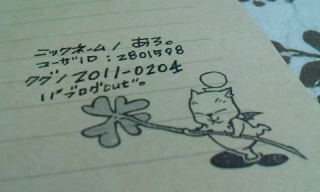 ニックネーム / あろ。
ユーザID : 2801598
タグ / 2011-0204
ブログcut。